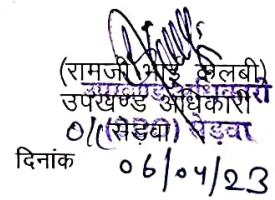 (रामजी भाई कलबी)
उपखण्ड अधिकारी
उपखण्ड अधिकारी
O/C (सेड़वा) सेड़वा
दिनांक 06/04/23